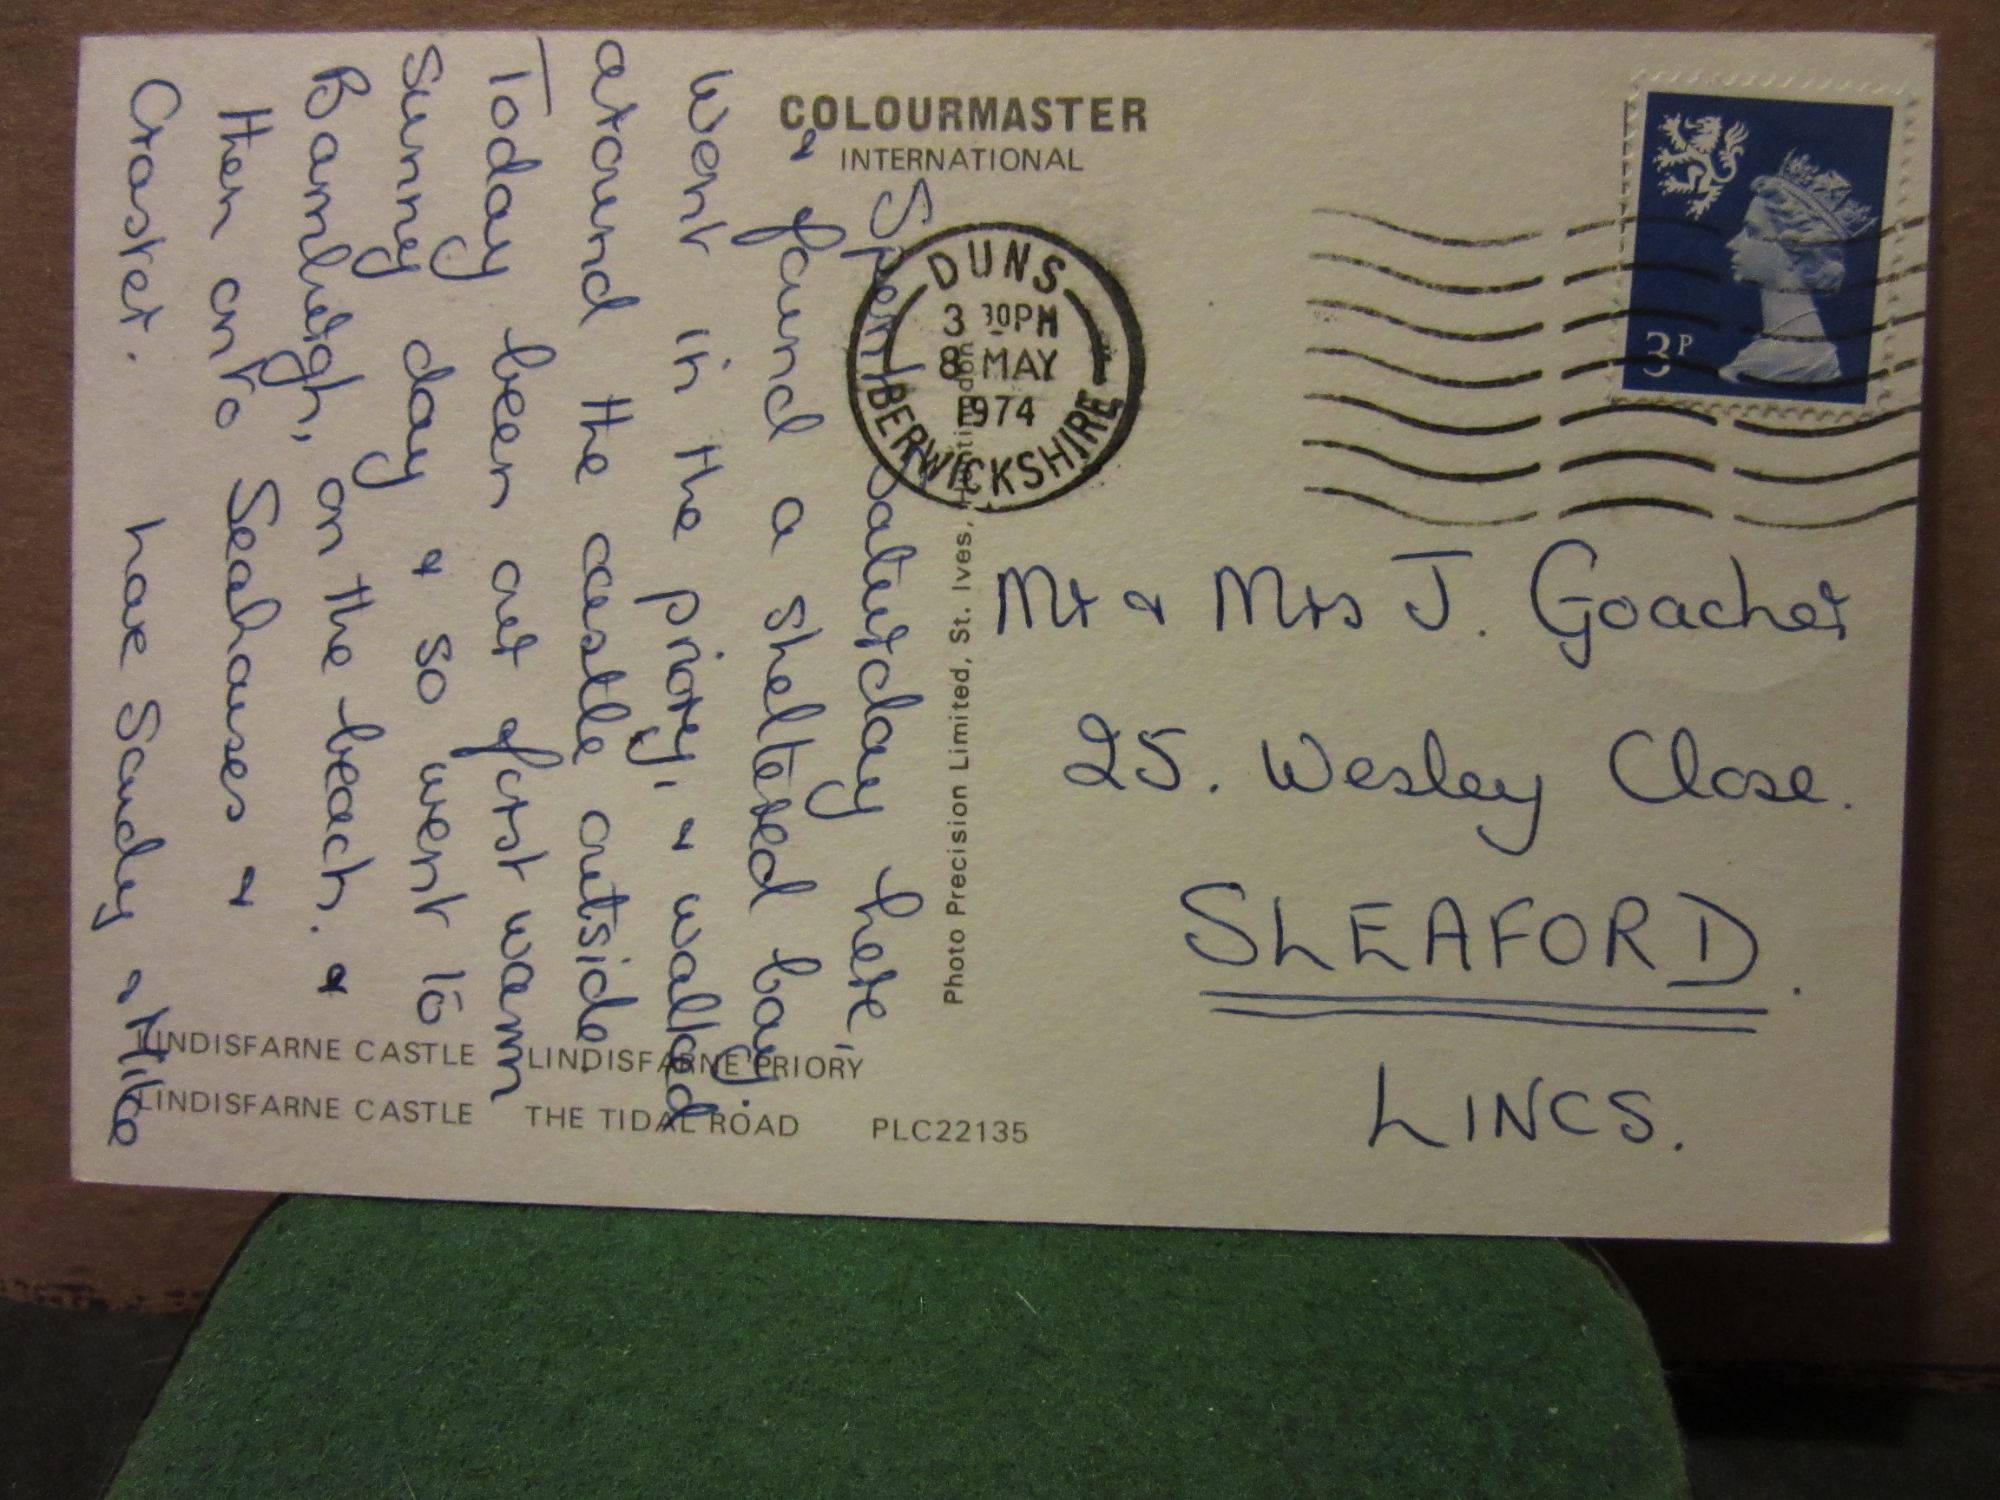 COLOURMASTER
INTERNATIONAL
Spent Saturday here,
& found a sheltered bay.
Went in the priory, & walked
around the castle outside.
Today been our first warm
sunny day & so went to
Bamburgh, on the beach. &
then onto Seahouses &
Craster. love Sandy & Mike
DUNS
3 30PM
8 MAY
1974
BERWICKSHIRE
3P
Photo Precision Limited, St. Ives, Huntingdon
Mr & Mrs J. Goacher
25. Wesley Close.
SLEAFORD.
LINCS.
LINDISFARNE CASTLE LINDISFARNE PRIORY
LINDISFARNE CASTLE THE TIDAL ROAD PLC22135